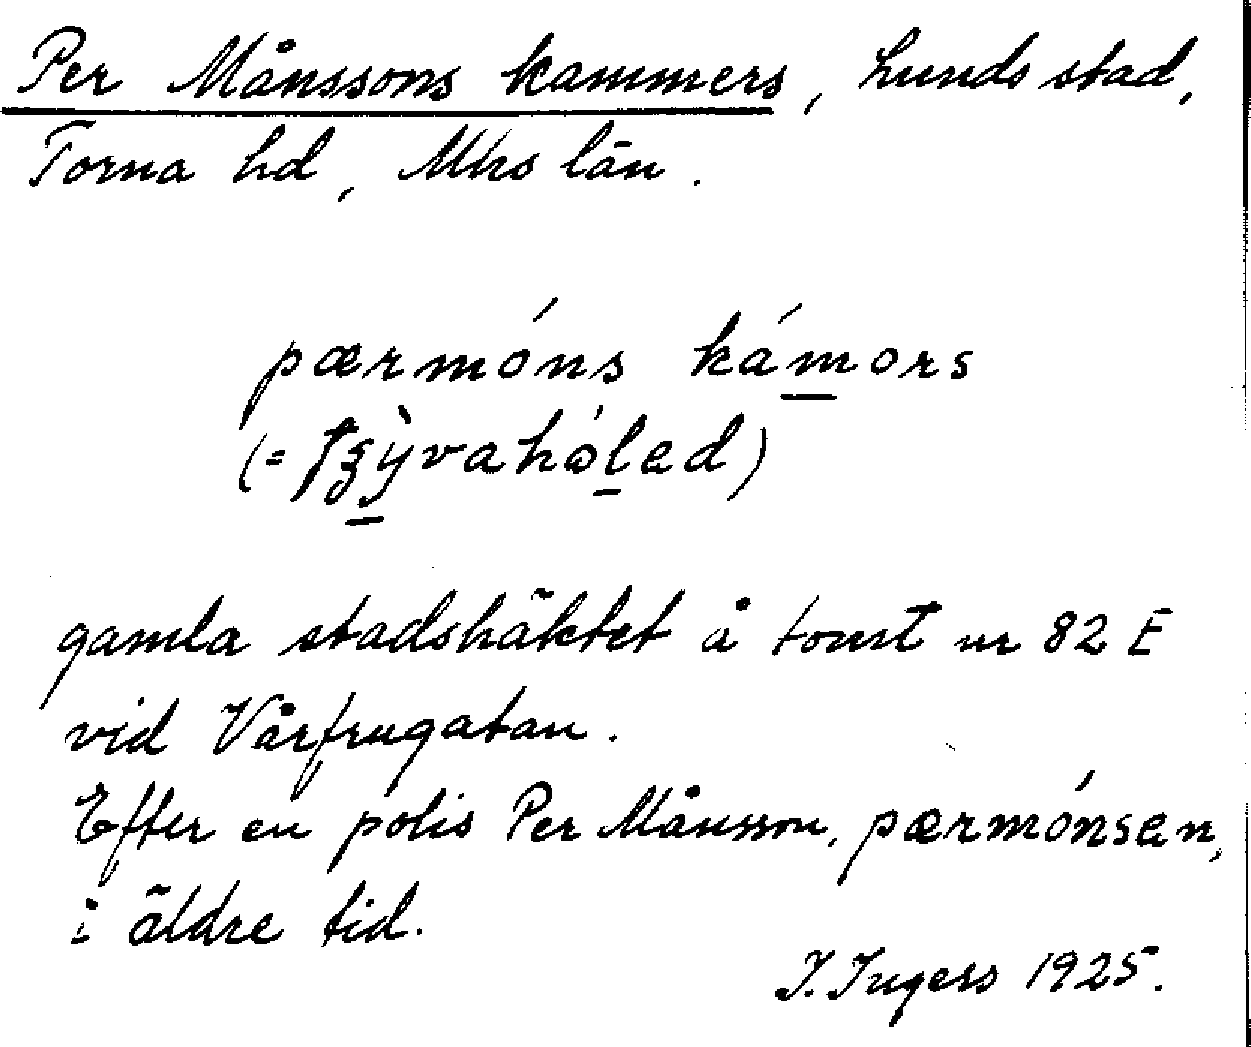 Per Månssons kammers, Lunds stad,
Torna hd, Mhs län.
pærmóns kámors
(= tʒỳvahóled)
gamla stadshäktet å tomt nr 82 E
vid Vårfrugatan.
Efter en polis Per Månsson, pærmónsen,
i äldre tid.
I. Ingers 1925.